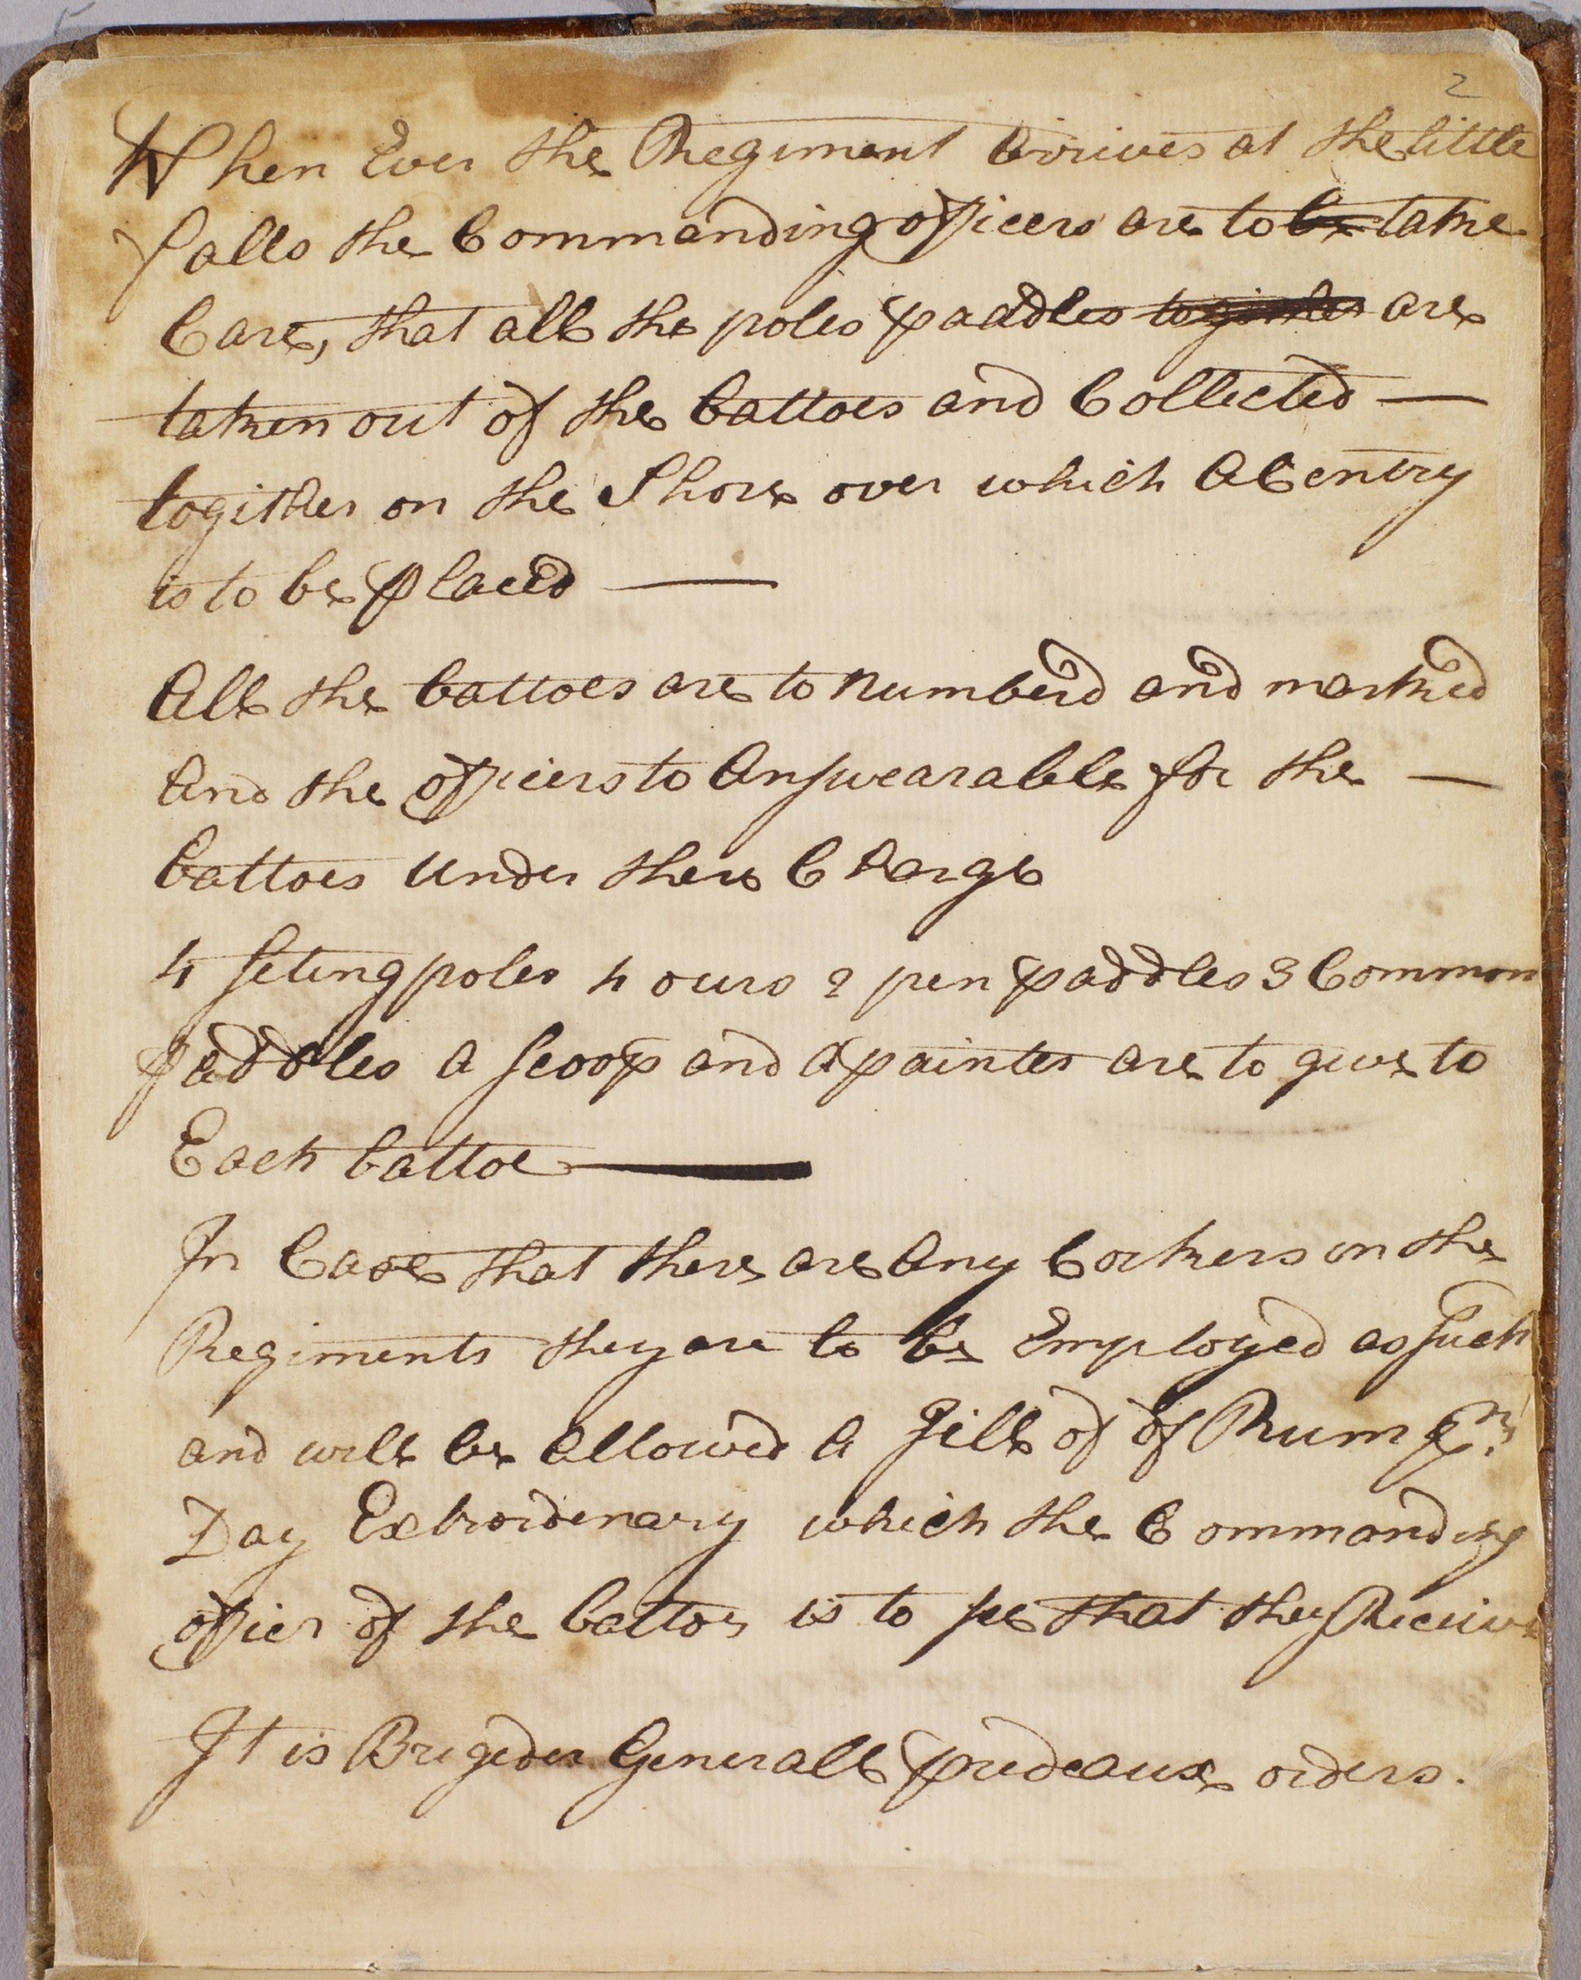 2
When Ever the Regiment Arrives at the little
falls the Commanding officers are to be take
Care, that all the poles paddles together are
taken out of the battoes and Collected —
together on the Shore over which A Centry
is to be placed —
All the battoes are to Numberd and marked
And the officers to Answearable for the —
battoes Under there Charge
4 seting poles 4 ours 2 pen paddles 3 Common
paddles a scoop and a painter are to give to
Each battoe —
In Case that there are Any Corkers in the
Regiments they are to be Employed as such
and will be allowed A Jill of of Rum pr
Day Extrordenary which the Commanding
officer of the battoes is to see that they Receive
It is Brigeder Generall prideaux orders.